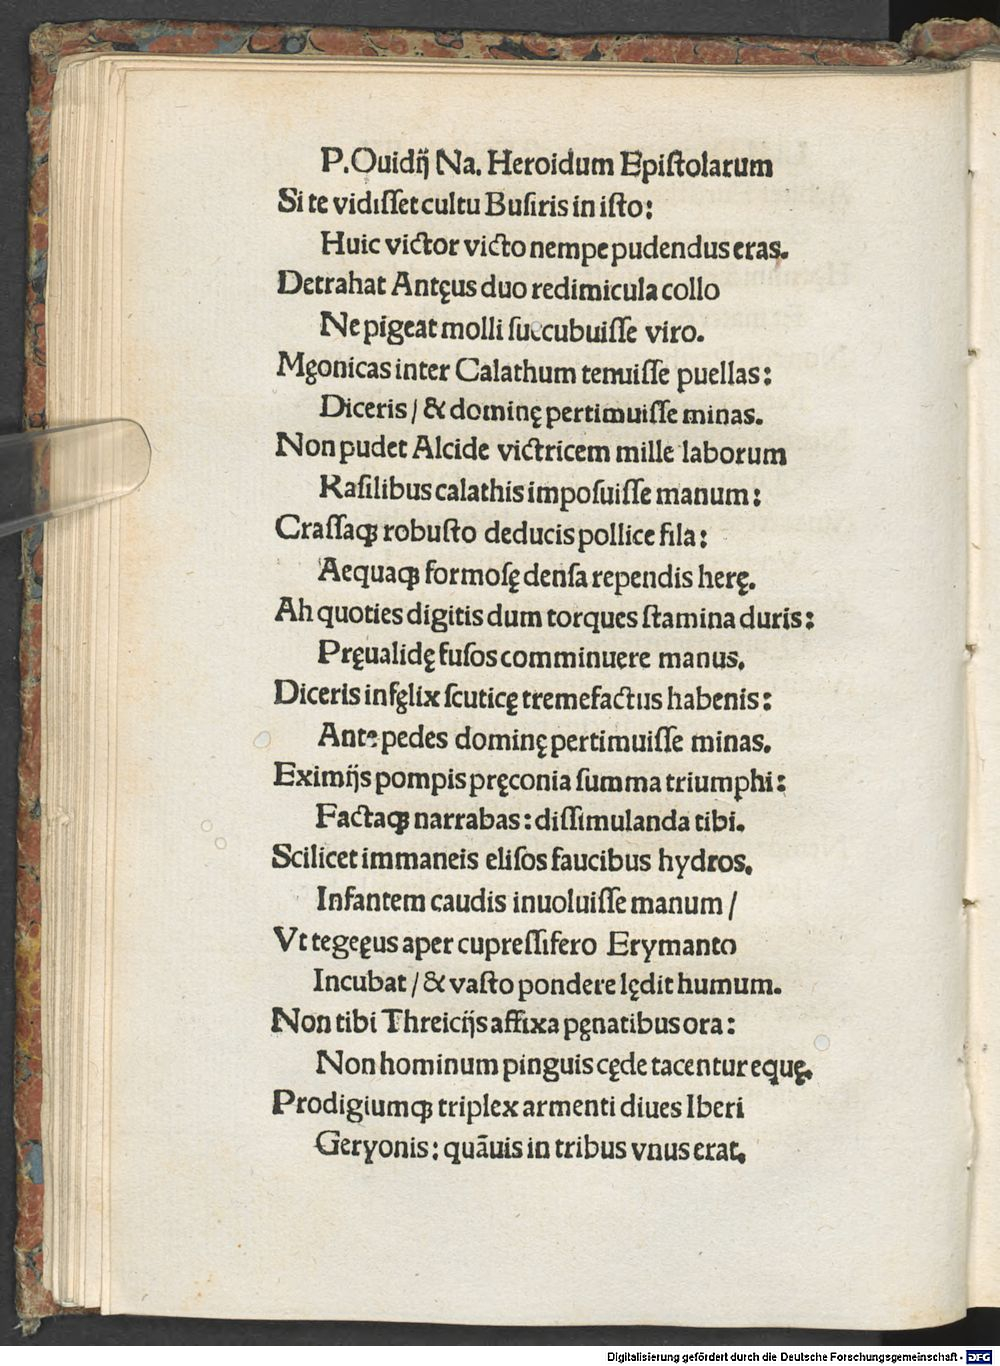 P.Ouidij Na. Heroidum Epiſtolarum
Si te vidiſſet cultu Buſiris in iſto:
Huic victor victo nempe pudendus eras.
Detrahat Antęus duo redimicula collo
Ne pigeat molli ſuccubuiſſe viro.
Męonicas inter Calathum tenuiſſe puellas:
Diceris / & dominę pertimuiſſe minas.
Non pudet Alcide victricem mille laborum
Raſilibus calathis impoſuiſſe manum:
Craſſaqꝫ robuſto deducis pollice fila:
Aequaqꝫ formoſę denſa rependis herę.
Ah quoties digitis dum torques ſtamina duris:
Pręualidę fuſos comminuere manus.
Diceris infęlix ſcuticę tremefactus habenis:
Ante pedes dominę pertimuiſſe minas.
Eximijs pompis pręconia ſumma triumphi:
Factaqꝫ narrabas: diſſimulanda tibi.
Scilicet immaneis eliſos faucibus hydros.
Infantem caudis inuoluiſſe manum /
Vt tegeęus aper cupreſſifero Erymanto
Incubat / & vaſto pondere lędit humum.
Non tibi Threicijs affixa pęnatibus ora:
Non hominum pinguis cęde tacentur equę.
Prodigiumqꝫ triplex armenti diues Iberi
Geryonis: quāuis in tribus vnus erat.
Digitalisierung gefördert durch die Deutsche Forschungsgemeinschaft - DFG